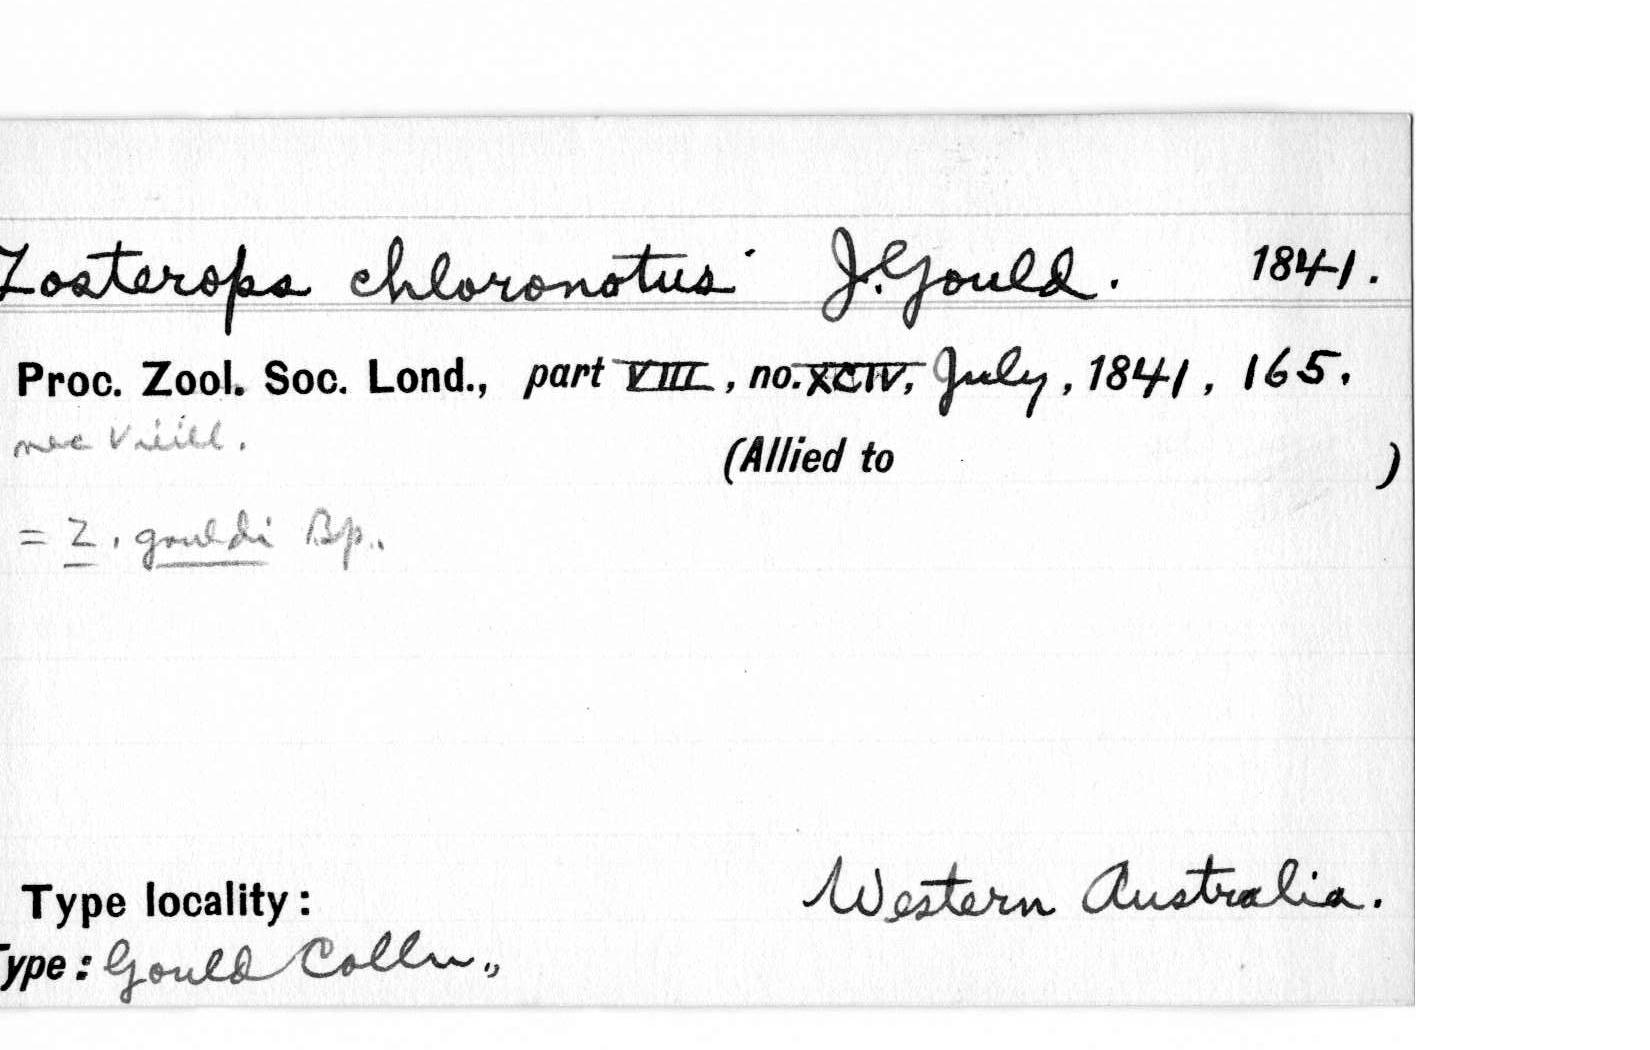 Zosterops chloronotus J. Gould. 1841.
Proc. Zool. Soc. Lond., part VIII, no. XCIV, July, 1841, 165.
nec Vieill.
(Allied to )
= Z. gouldi Bp.
Type locality: Western Australia.
Type: Gould Colln.,